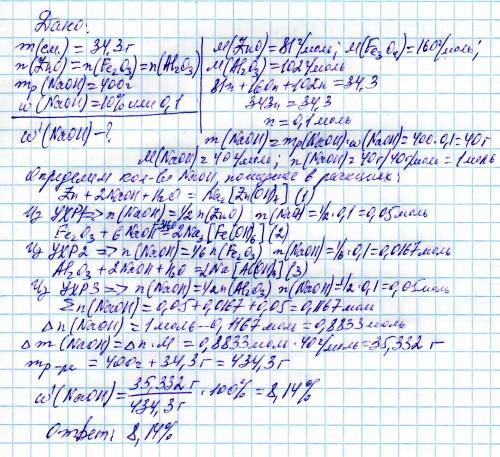 Дано:
m(см.) = 34,3г
n(ZnO)=n(Fe₂O₃)=n(Al₂O₃)
mр(NaOH)=400г
ω(NaOH)=10% или 0,1
ω'(NaOH)-?
M(ZnO)=81г/моль; M(Fe₂O₃)=160г/моль;
M(Al₂O₃)=102г/моль
81n+160n+102n=34,3
343n=34,3
n=0,1моль
m(NaOH)=mр(NaOH)·ω(NaOH)=400·0,1=40г
M(NaOH)=40г/моль; n(NaOH)=40г/40г/моль=1моль
Определим кол-во NaOH, пошедшее в реакциях:
Zn+2NaOH+H₂O=Na₂[Zn(OH)₄] (1)
Из УХР1=>n(NaOH)=1/2n(ZnO) n(NaOH)=1/2·0,1=0,05моль
Fe₂O₃+6NaOH+3H₂O=2Na₃[Fe(OH)₆] (2)
Из УХР2=>n(NaOH)=1/6n(Fe₂O₃) n(NaOH)=1/6·0,1=0,0167моль
Al₂O₃+2NaOH+H₂O=2Na[Al(OH)₄] (3)
Из УХР3=>n(NaOH)=1/2n(Al₂O₃) n(NaOH)=1/2·0,1=0,05моль
Σn(NaOH)=0,05+0,0167+0,05=0,1167моль
Δn(NaOH)=1моль-0,1167моль=0,8833моль
Δm(NaOH)=Δn·M=0,8833моль·40г/моль=35,332г
mр-ра=400г+34,3г=434,3г
ω'(NaOH)=35,332г/434,3г·100%=8,14%
Ответ: 8,14%